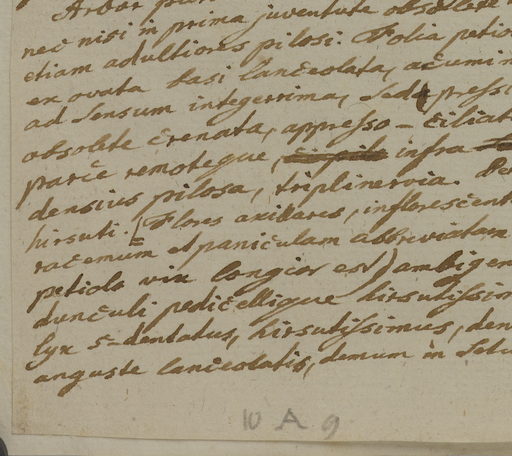 Arbor
nec nisi in prima juventute obsolete
etiam adultiores pilosi. Folia petio
ex ovata basi lanceolata, acumin
ad sensum integerrima, sed pressi
obsolete crenata, appresso-ciliat
parce remoteque, infra
densius pilosa, triplinervia. Pe
hirsuti. [Flores axillares, inflorescent
racemum et paniculam abbreviatam
petiolo vix longior est) ambigen
dunculi pedicellique hirsutissim
lyx 5-dentatus, hirsutissimus, den
anguste lanceolatis, demum in setu
10 A 9